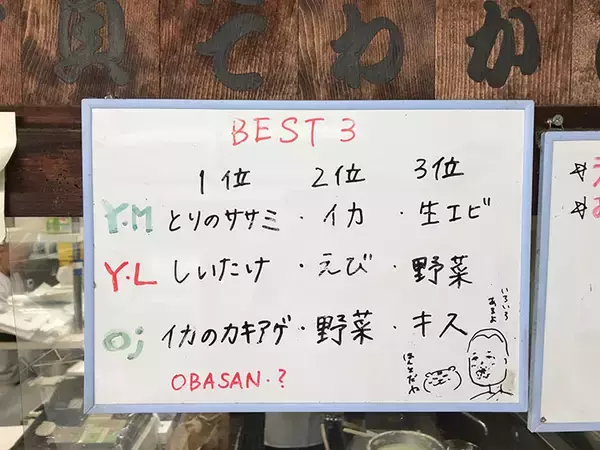 てわか
BEST 3
1位 2位 3位
Y.M とりのササミ・イカ・生エビ
Y.L しいたけ・えび・野菜
Oj イカのカキアゲ・野菜・キス
OBASAN.?
いろいろ
あるよ
ほんとだわ